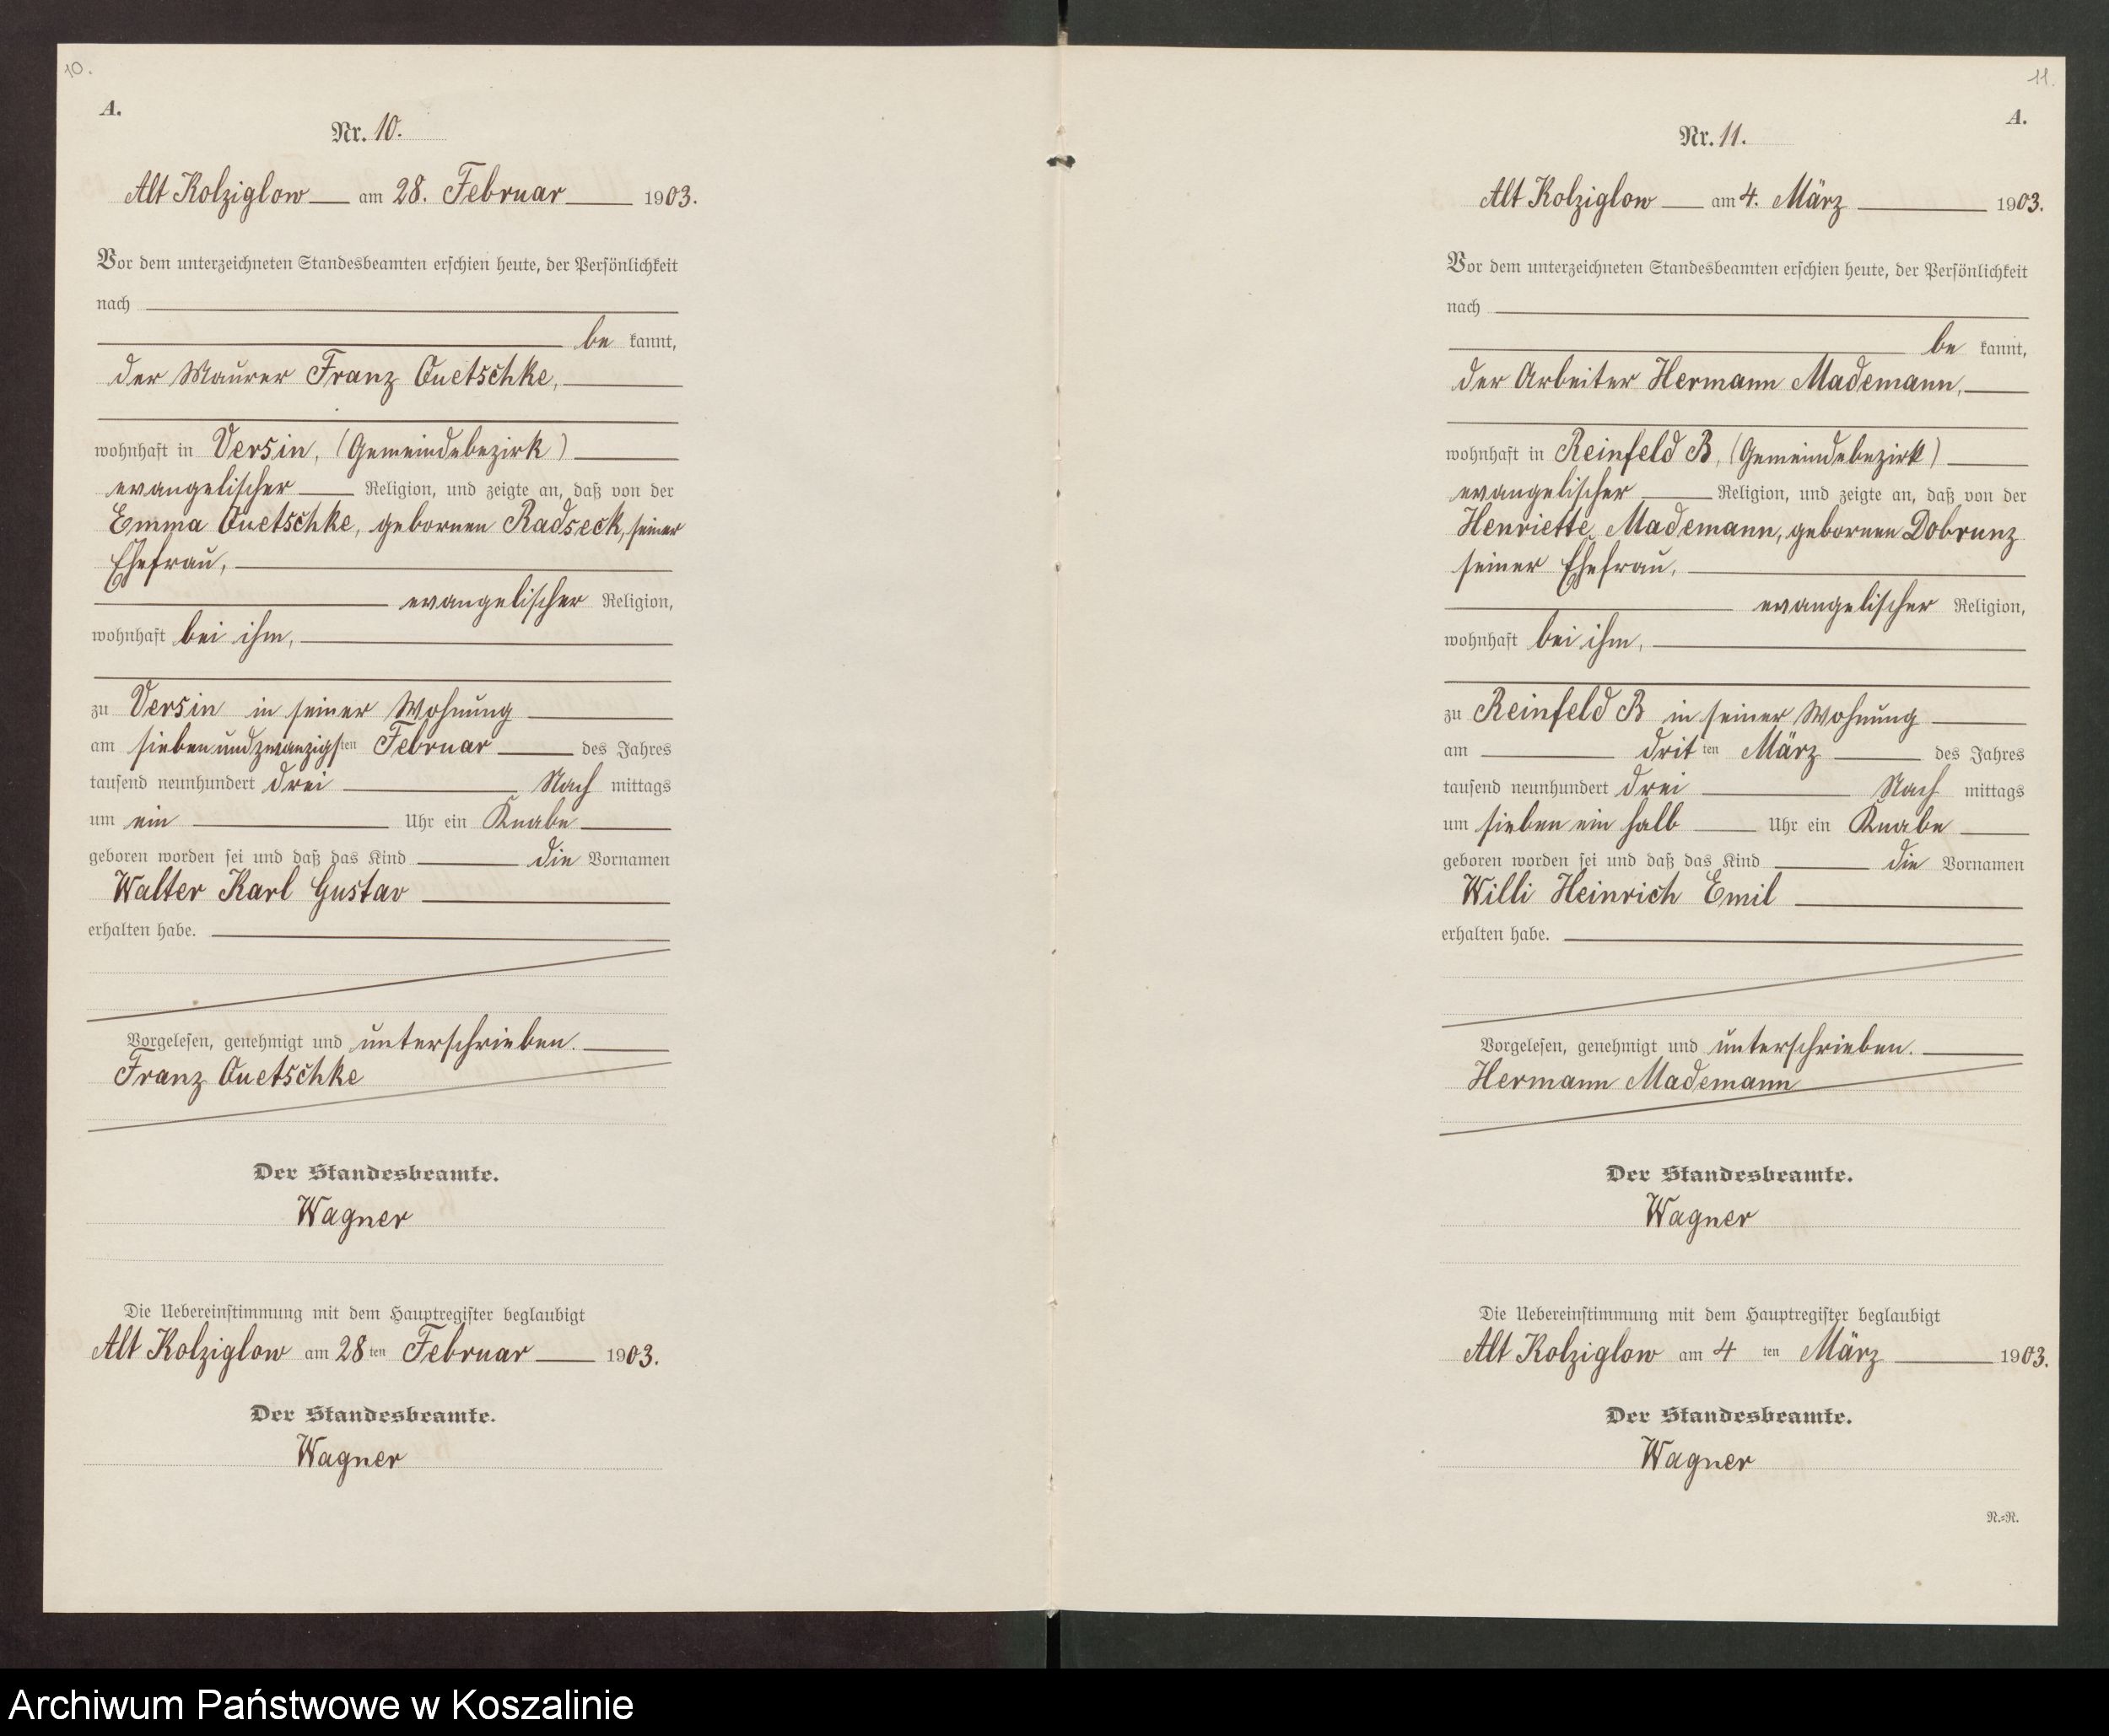 10.
A.
Nr. 10.
Alt Kolziglow am 28. Februar 1903.
Vor dem unterzeichneten Standesbeamten erschien heute, der Persönlichkeit
nach
be kannt,
der Maurer Franz Quetschke,
wohnhaft in Versin, (Gemeindebezirk)
evangelischer Religion, und zeigte an, daß von der
Emma Quetschke, gebornen Radseck, seiner
Ehefrau,
evangelischer Religion,
wohnhaft bei ihm,
zu Versin in seiner Wohnung
am siebenundzwanzigsten Februar des Jahres
tausend neunhundert drei Nach mittags
um ein Uhr ein Knabe
geboren worden sei und daß das Kind die Vornamen
Walter Karl Gustav
erhalten habe.
Vorgelesen, genehmigt und unterschrieben.
Franz Quetschke
Der Standesbeamte.
Wagner
Die Uebereinstimmung mit dem Hauptregister beglaubigt
Alt Kolziglow am 28 ten Februar 1903.
Der Standesbeamte.
Wagner
11.
A.
Nr. 11.
Alt Kolziglow am 4. März 1903.
Vor dem unterzeichneten Standesbeamten erschien heute, der Persönlichkeit
nach
be kannt,
der Arbeiter Hermann Mademann,
wohnhaft in Reinfeld B, (Gemeindebezirk)
evangelischer Religion, und zeigte an, daß von der
Henriette Mademann, gebornen Dobrunz
seiner Ehefrau,
evangelischer Religion,
wohnhaft bei ihm,
zu Reinfeld B in seiner Wohnung
am drit ten März des Jahres
tausend neunhundert drei Nach mittags
um sieben ein halb Uhr ein Knabe
geboren worden sei und daß das Kind die Vornamen
Willi Heinrich Emil
erhalten habe.
Vorgelesen, genehmigt und unterschrieben.
Hermann Mademann
Der Standesbeamte.
Wagner
Die Uebereinstimmung mit dem Hauptregister beglaubigt
Alt Kolziglow am 4 ten März 1903.
Der Standesbeamte.
Wagner
R.=R.
Archiwum Państwowe w Koszalinie